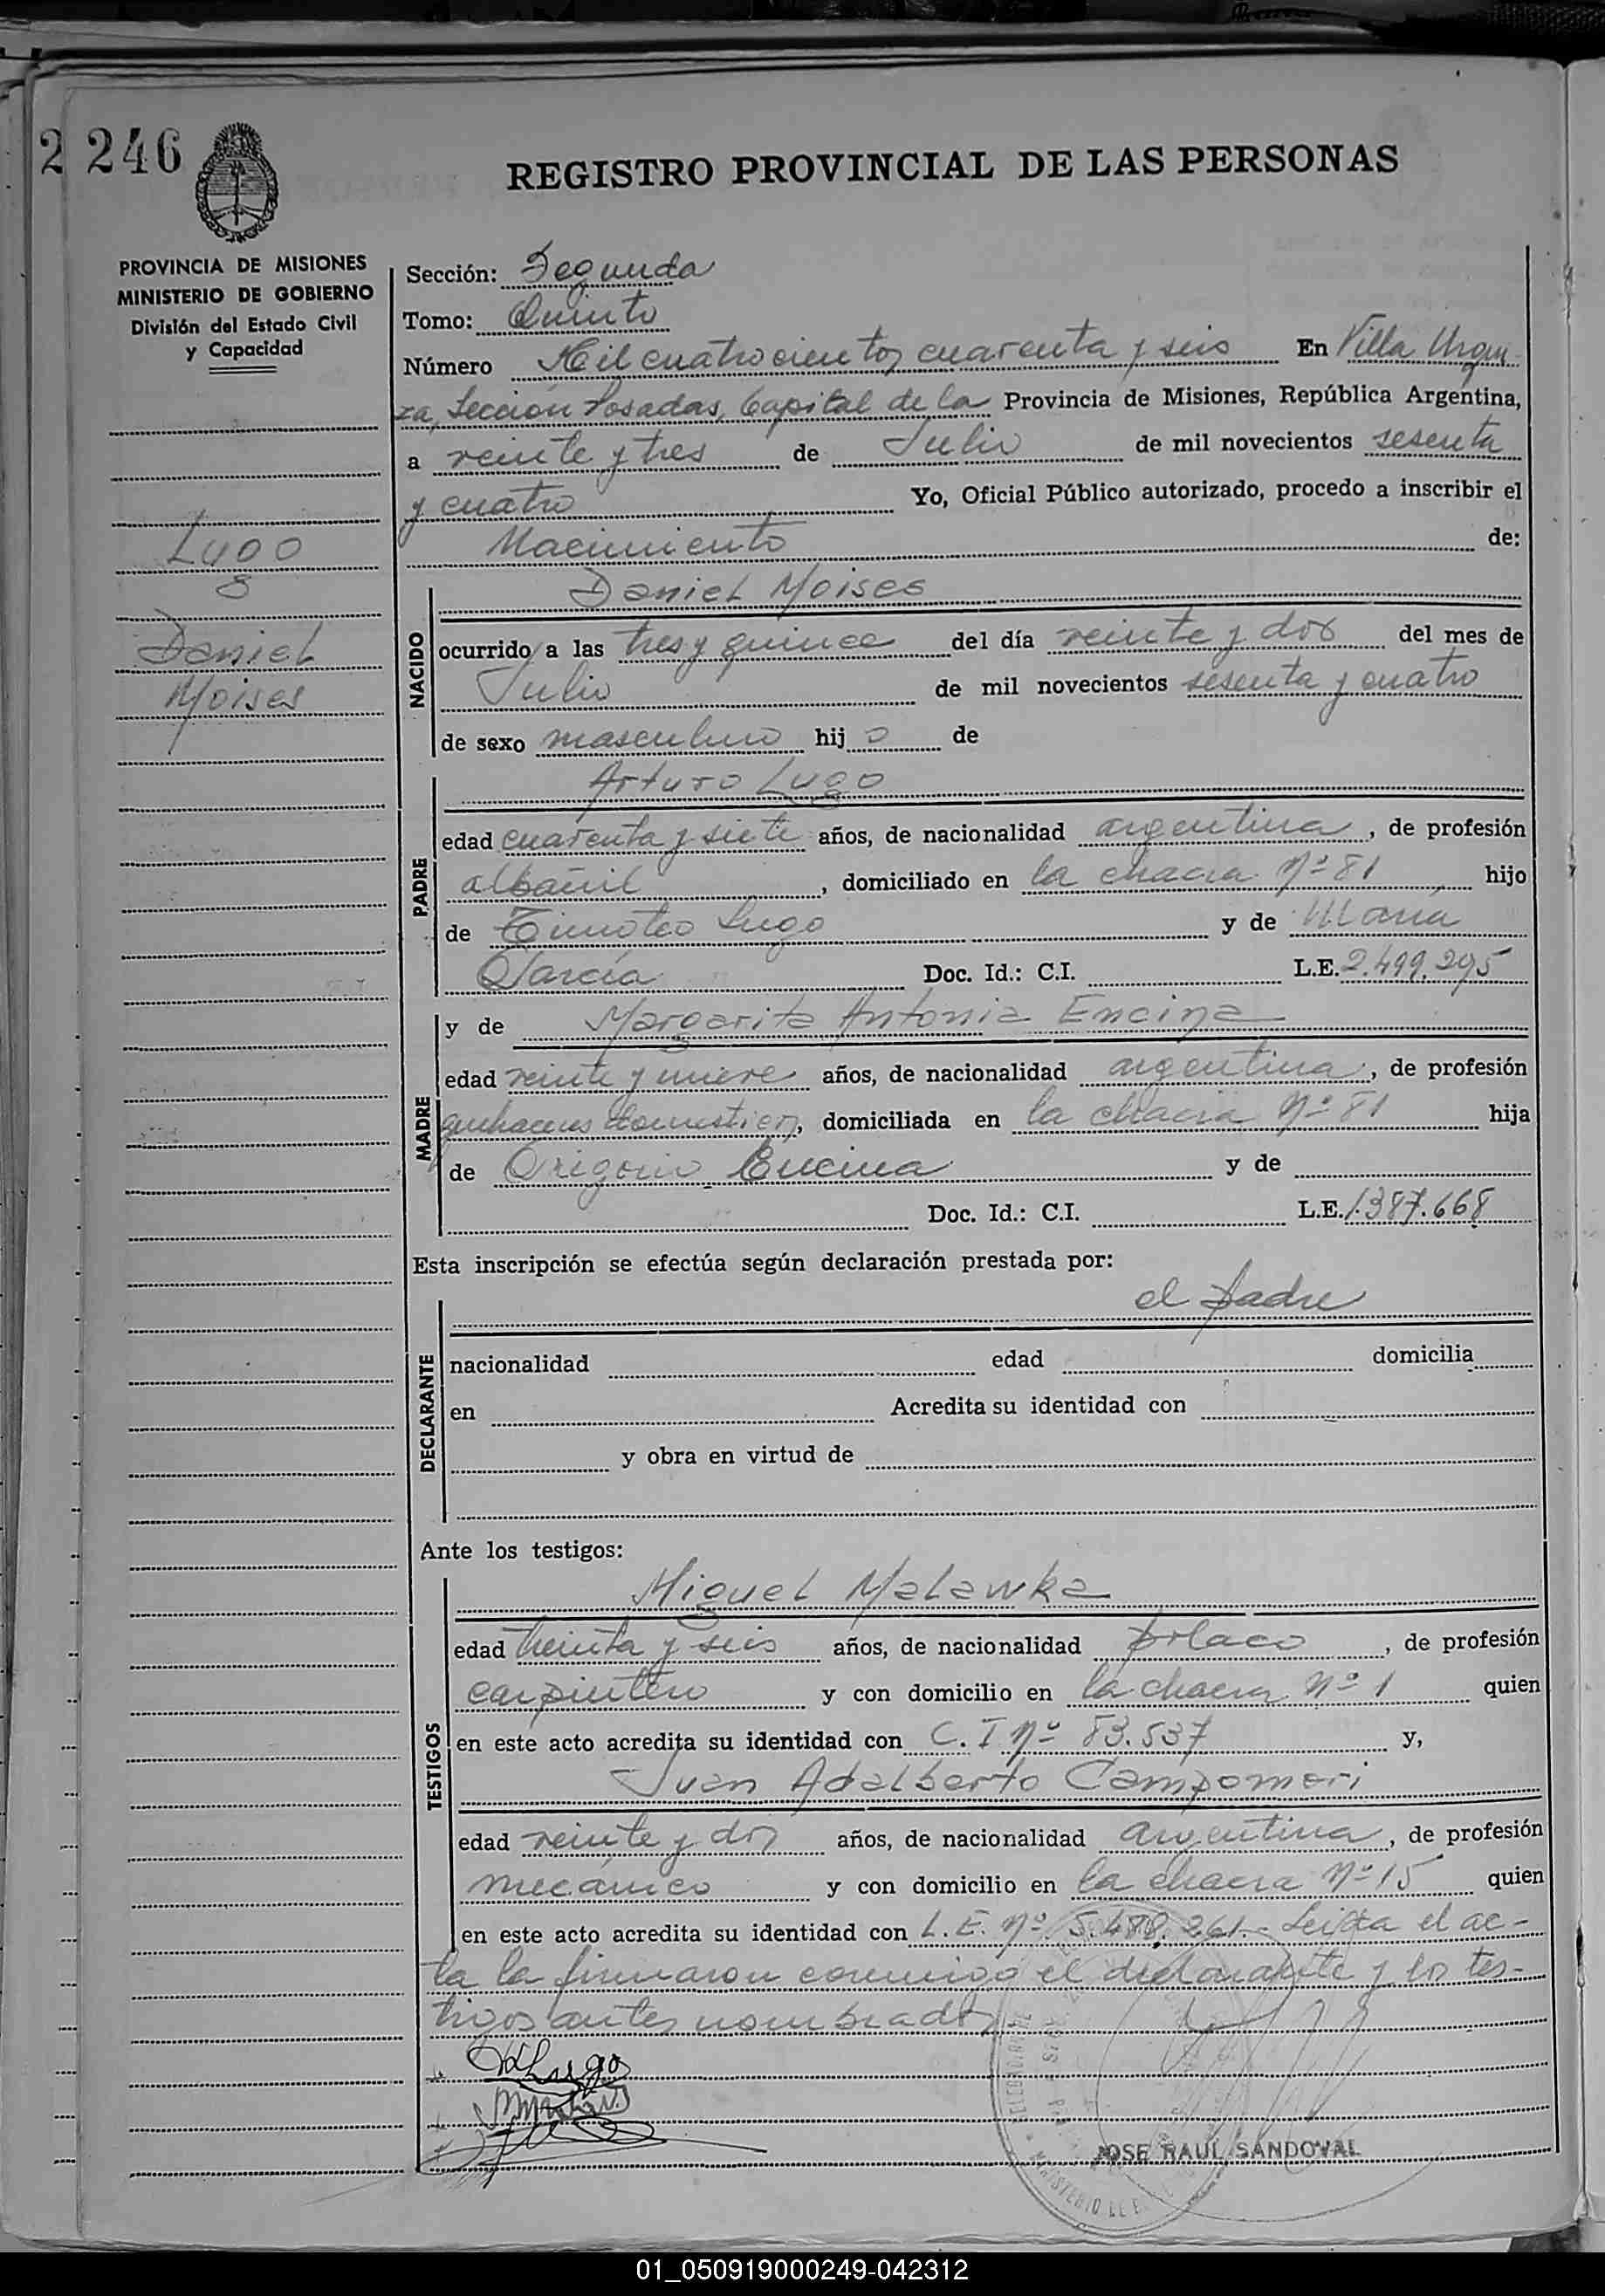 2 246
REGISTRO PROVINCIAL DE LAS PERSONAS
PROVINCIA DE MISIONES
MINISTERIO DE GOBIERNO
División del Estado Civil
y Capacidad
Lugo
Daniel
Moises
Sección: Segunda
Tomo: Quinto
Número Mil cuatrocientos cuarenta y seis En Villa Urqui
za, Sección Posadas, Capital de la Provincia de Misiones, República Argentina,
a veinte y tres de Julio de mil novecientos sesenta
y cuatro Yo, Oficial Público autorizado, procedo a inscribir el
Nacimiento de:
NACIDO
Daniel Moises
ocurrido a las tres y quince del día veinte y dos del mes de
Julio de mil novecientos sesenta y cuatro
de sexo masculino hijo de
PADRE
Arturo Lugo
edad cuarenta y siete años, de nacionalidad argentina, de profesión
albañil, domiciliado en la chacra Nº 81 hijo
de Timoteo Lugo y de María
García Doc. Id.: C.I. L.E. 2.499.295
MADRE
y de Margarita Antonia Encina
edad veinte y nueve años, de nacionalidad argentina, de profesión
quehaceres domesticos, domiciliada en la chacra Nº 81 hija
de Grigorio Encina y de
Doc. Id.: C.I. L.E. 1.387.668
Esta inscripción se efectúa según declaración prestada por:
el padre
DECLARANTE
nacionalidad edad domicilia
en Acredita su identidad con
y obra en virtud de
Ante los testigos:
TESTIGOS
Miguel Malawka
edad treinta y seis años, de nacionalidad polaco, de profesión
carpintero y con domicilio en la chacra Nº 1 quien
en este acto acredita su identidad con C. I Nº 83.537 y,
Juan Adalberto Campomori
edad veinte y dos años, de nacionalidad argentina, de profesión
mecánico y con domicilio en la chacra Nº 15 quien
en este acto acredita su identidad con L. E. Nº 5.488.261.- Leida el ac-
ta la firmaron conmigo el declarante y los tes-
tigos antes nombrados
JOSE RAUL SANDOVAL
01_050919000249-042312